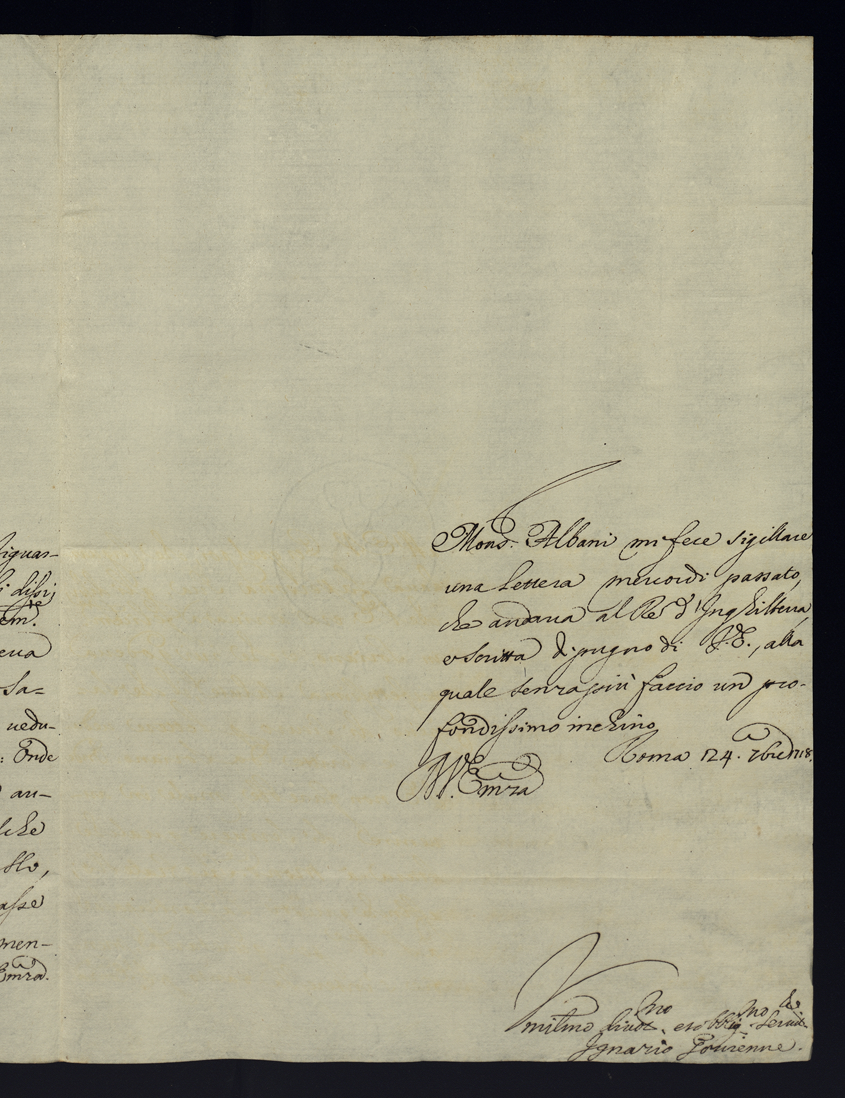 siguar-
i dissi,
Em.te
eua
Sa-
uedu-
: Onde
au-
lche
llo,
asse
men-
Emza.
Mons.r Albani mi fece sigillare
una lettera mercordi passato,
che andaua al Re d'Inghilterra,
e scritta di pugno di V.E., alla
quale senza più faccio un pro-
fondissimo inchino
Roma 124. 7bre 1718.
V.Emza
Vmilmo diuot.mo et obblig.mo Seruit.re
Ignazio